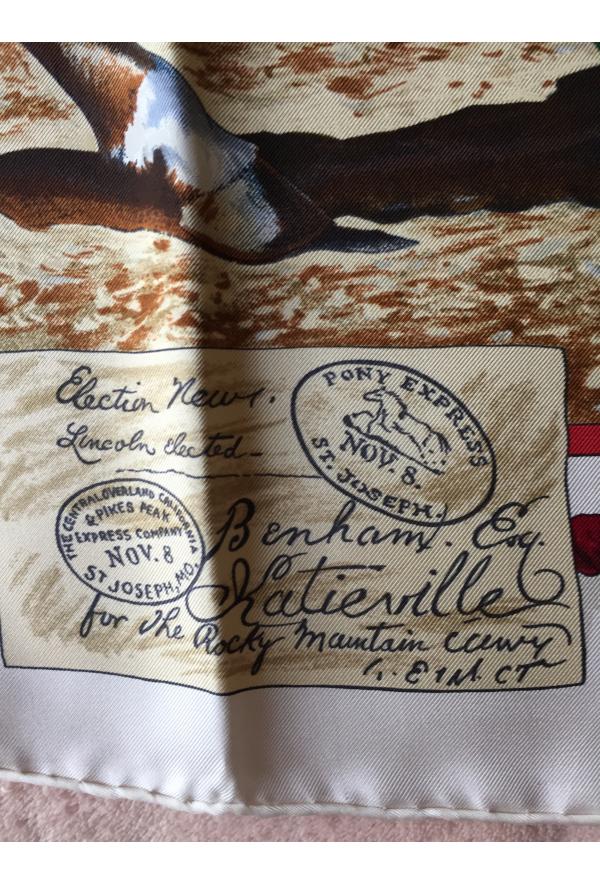 Election News.
Lincoln elected -
PONY EXPRESS
NOV. 8.
ST. JOSEPH.
THE CENTRAL OVERLAND CALIFORNIA
& PIKES PEAK
EXPRESS COMPANY
NOV. 8
ST JOSEPH, MO.
Benham. Esq.
Katieville
for the Rocky Mountain